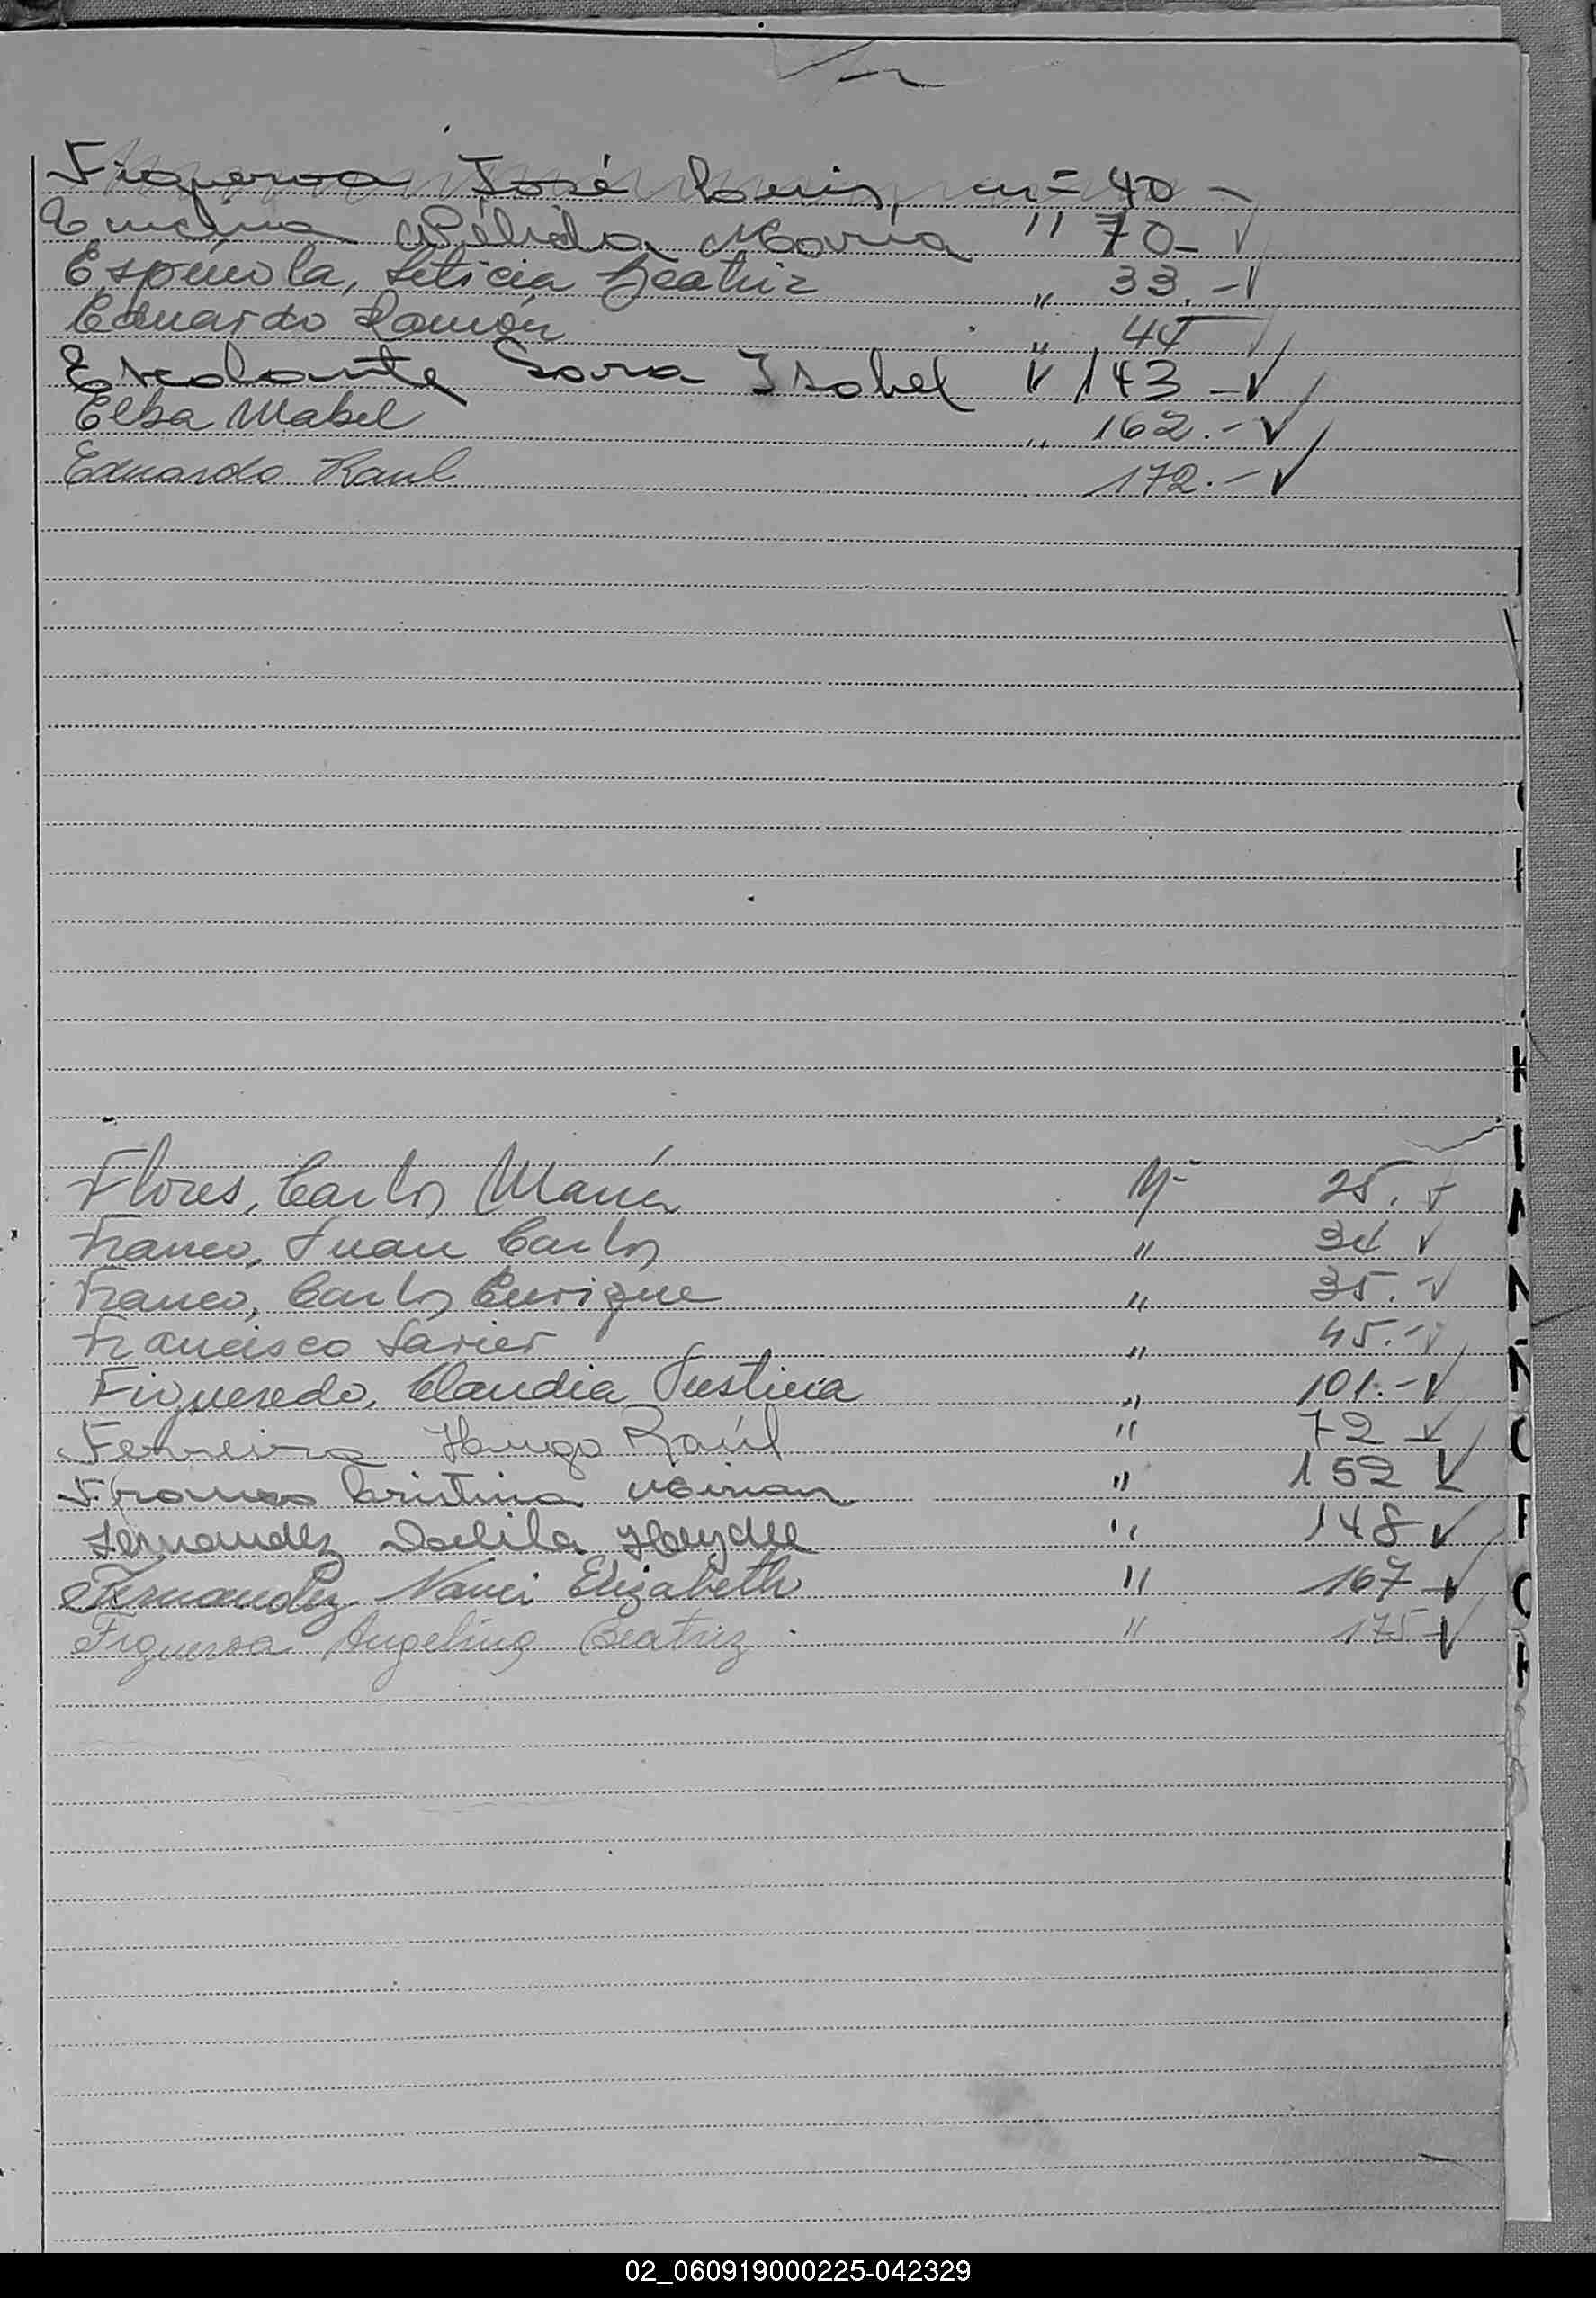 Figueroa José Luis, n= 40 -
Encina Nélida María " 70-
Espínola, Leticia Beatriz " 33.-
Eduardo Ramón " 44
Escalante Sara Isabel " 143 -
Elba Mabel " 162.-
Eduardo Raul 172.-
Flores, Carlos María Nº 25.
Franco, Juan Carlos " 34
Franco, Carlos Enrique " 35.-
Francisco Javier " 45.-
Figueredo, Claudia Justina " 101.-
Ferreira Hugo Raúl " 72
Franco Cristina Mirian " 152
Fernandez Dalila Haydee " 148
Fernandez Nanci Elizabeth " 167
Figueroa Angelina Beatriz " 175
02_060919000225-042329